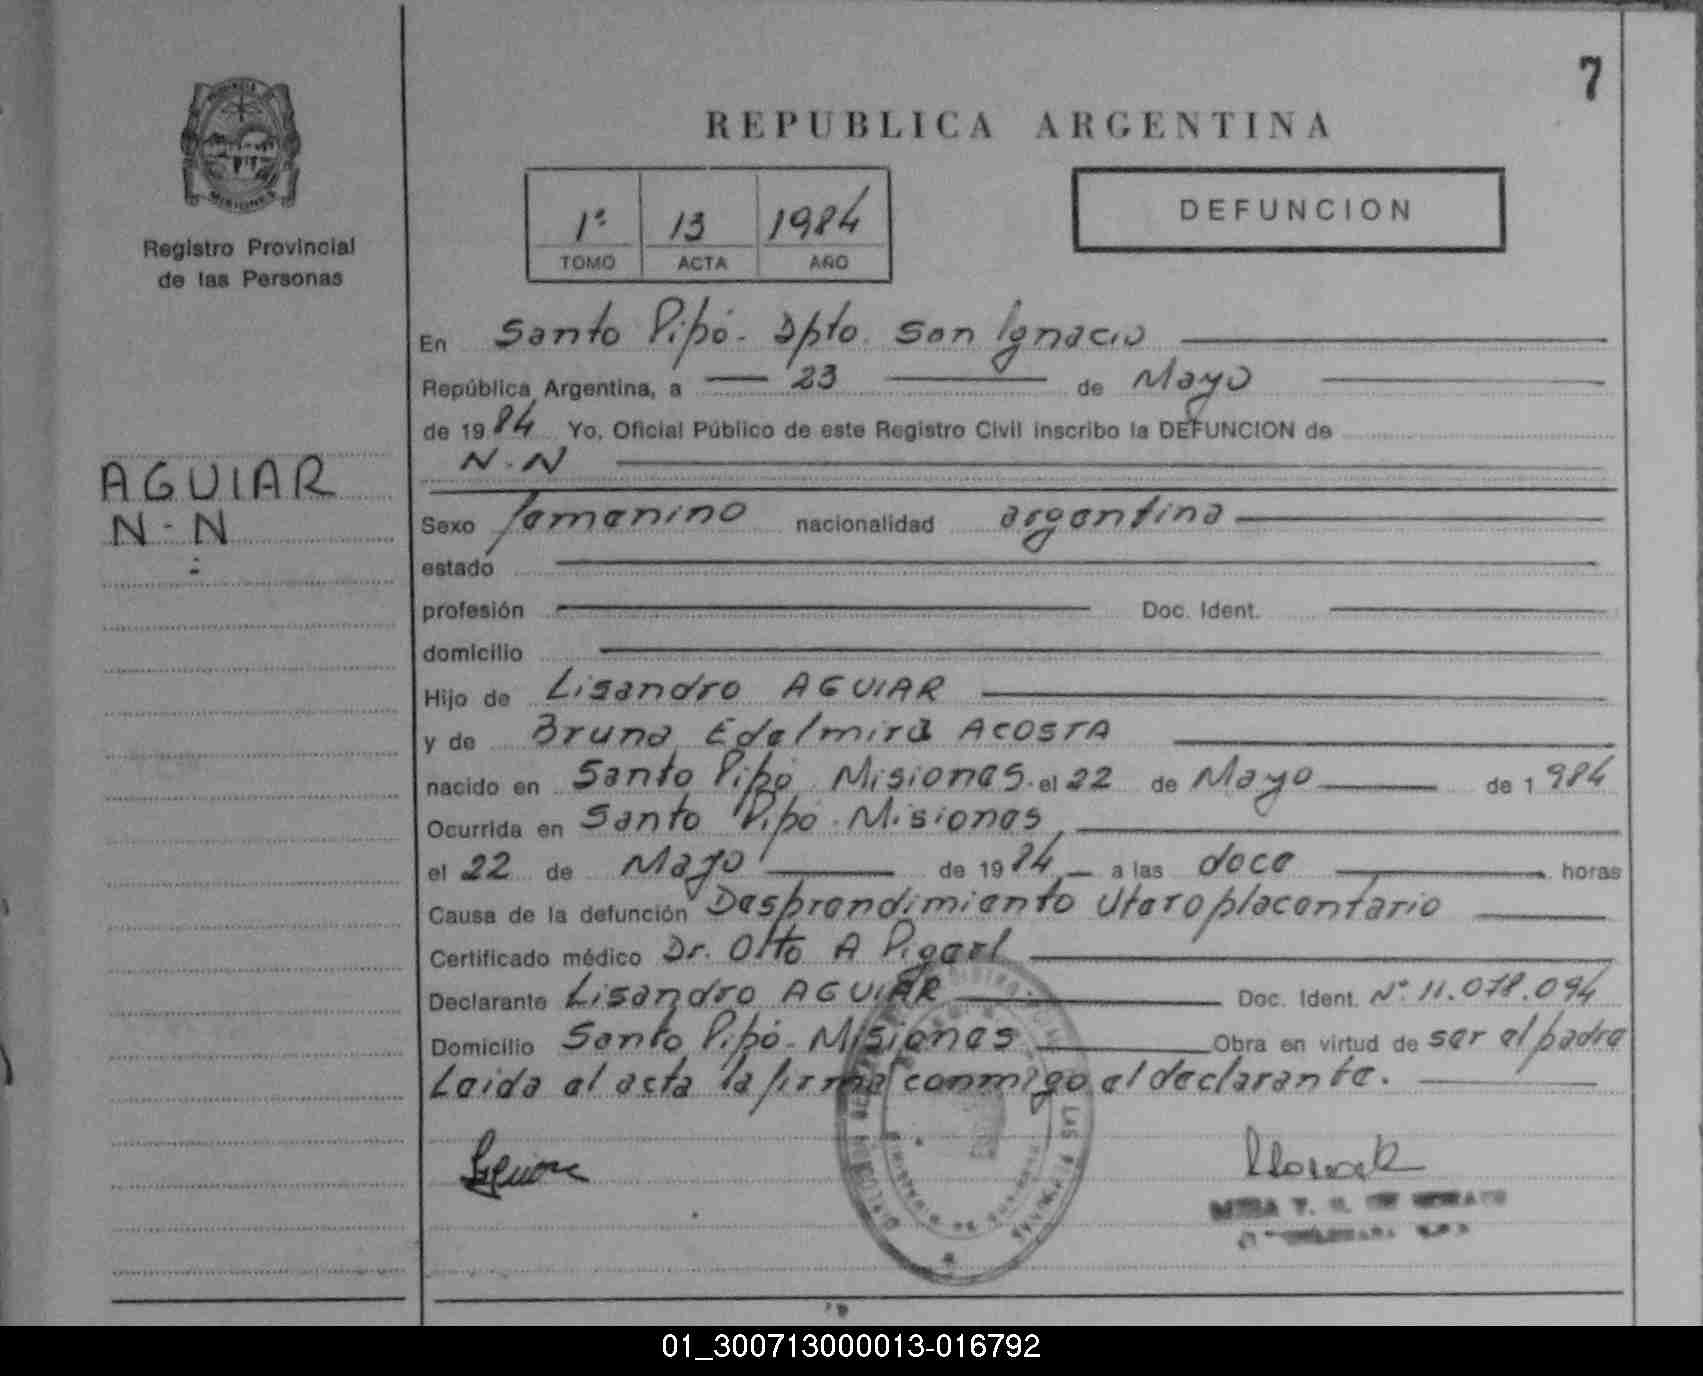 7
REPUBLICA ARGENTINA
PROVINCIA
MISIONES
Registro Provincial
de las Personas
1º 13 1984
TOMO ACTA AÑO
DEFUNCION
AGUIAR
N-N
En Santo Pipó - Dpto. San Ignacio
República Argentina, a 23 de Mayo
de 1984 Yo, Oficial Público de este Registro Civil inscribo la DEFUNCION de
N.N
Sexo femenino nacionalidad argentina
estado
profesión Doc. Ident.
domicilio
Hijo de Lisandro AGUIAR
y de Bruna Edelmira ACOSTA
nacido en Santo Pipó Misiones. el 22 de Mayo de 1984
Ocurrida en Santo Pipó - Misiones
el 22 de Mayo de 1984 a las doce horas
Causa de la defunción Desprendimiento Uteroplacentario
Certificado médico Dr. Otto A
Declarante Lisandro AGUIAR Doc. Ident. Nº 11.078.094
Domicilio Santo Pipó - Misiones Obra en virtud de ser el padre
Leida el acta la firma conmigo el declarante.
LAS PERSONAS
01_300713000013-016792